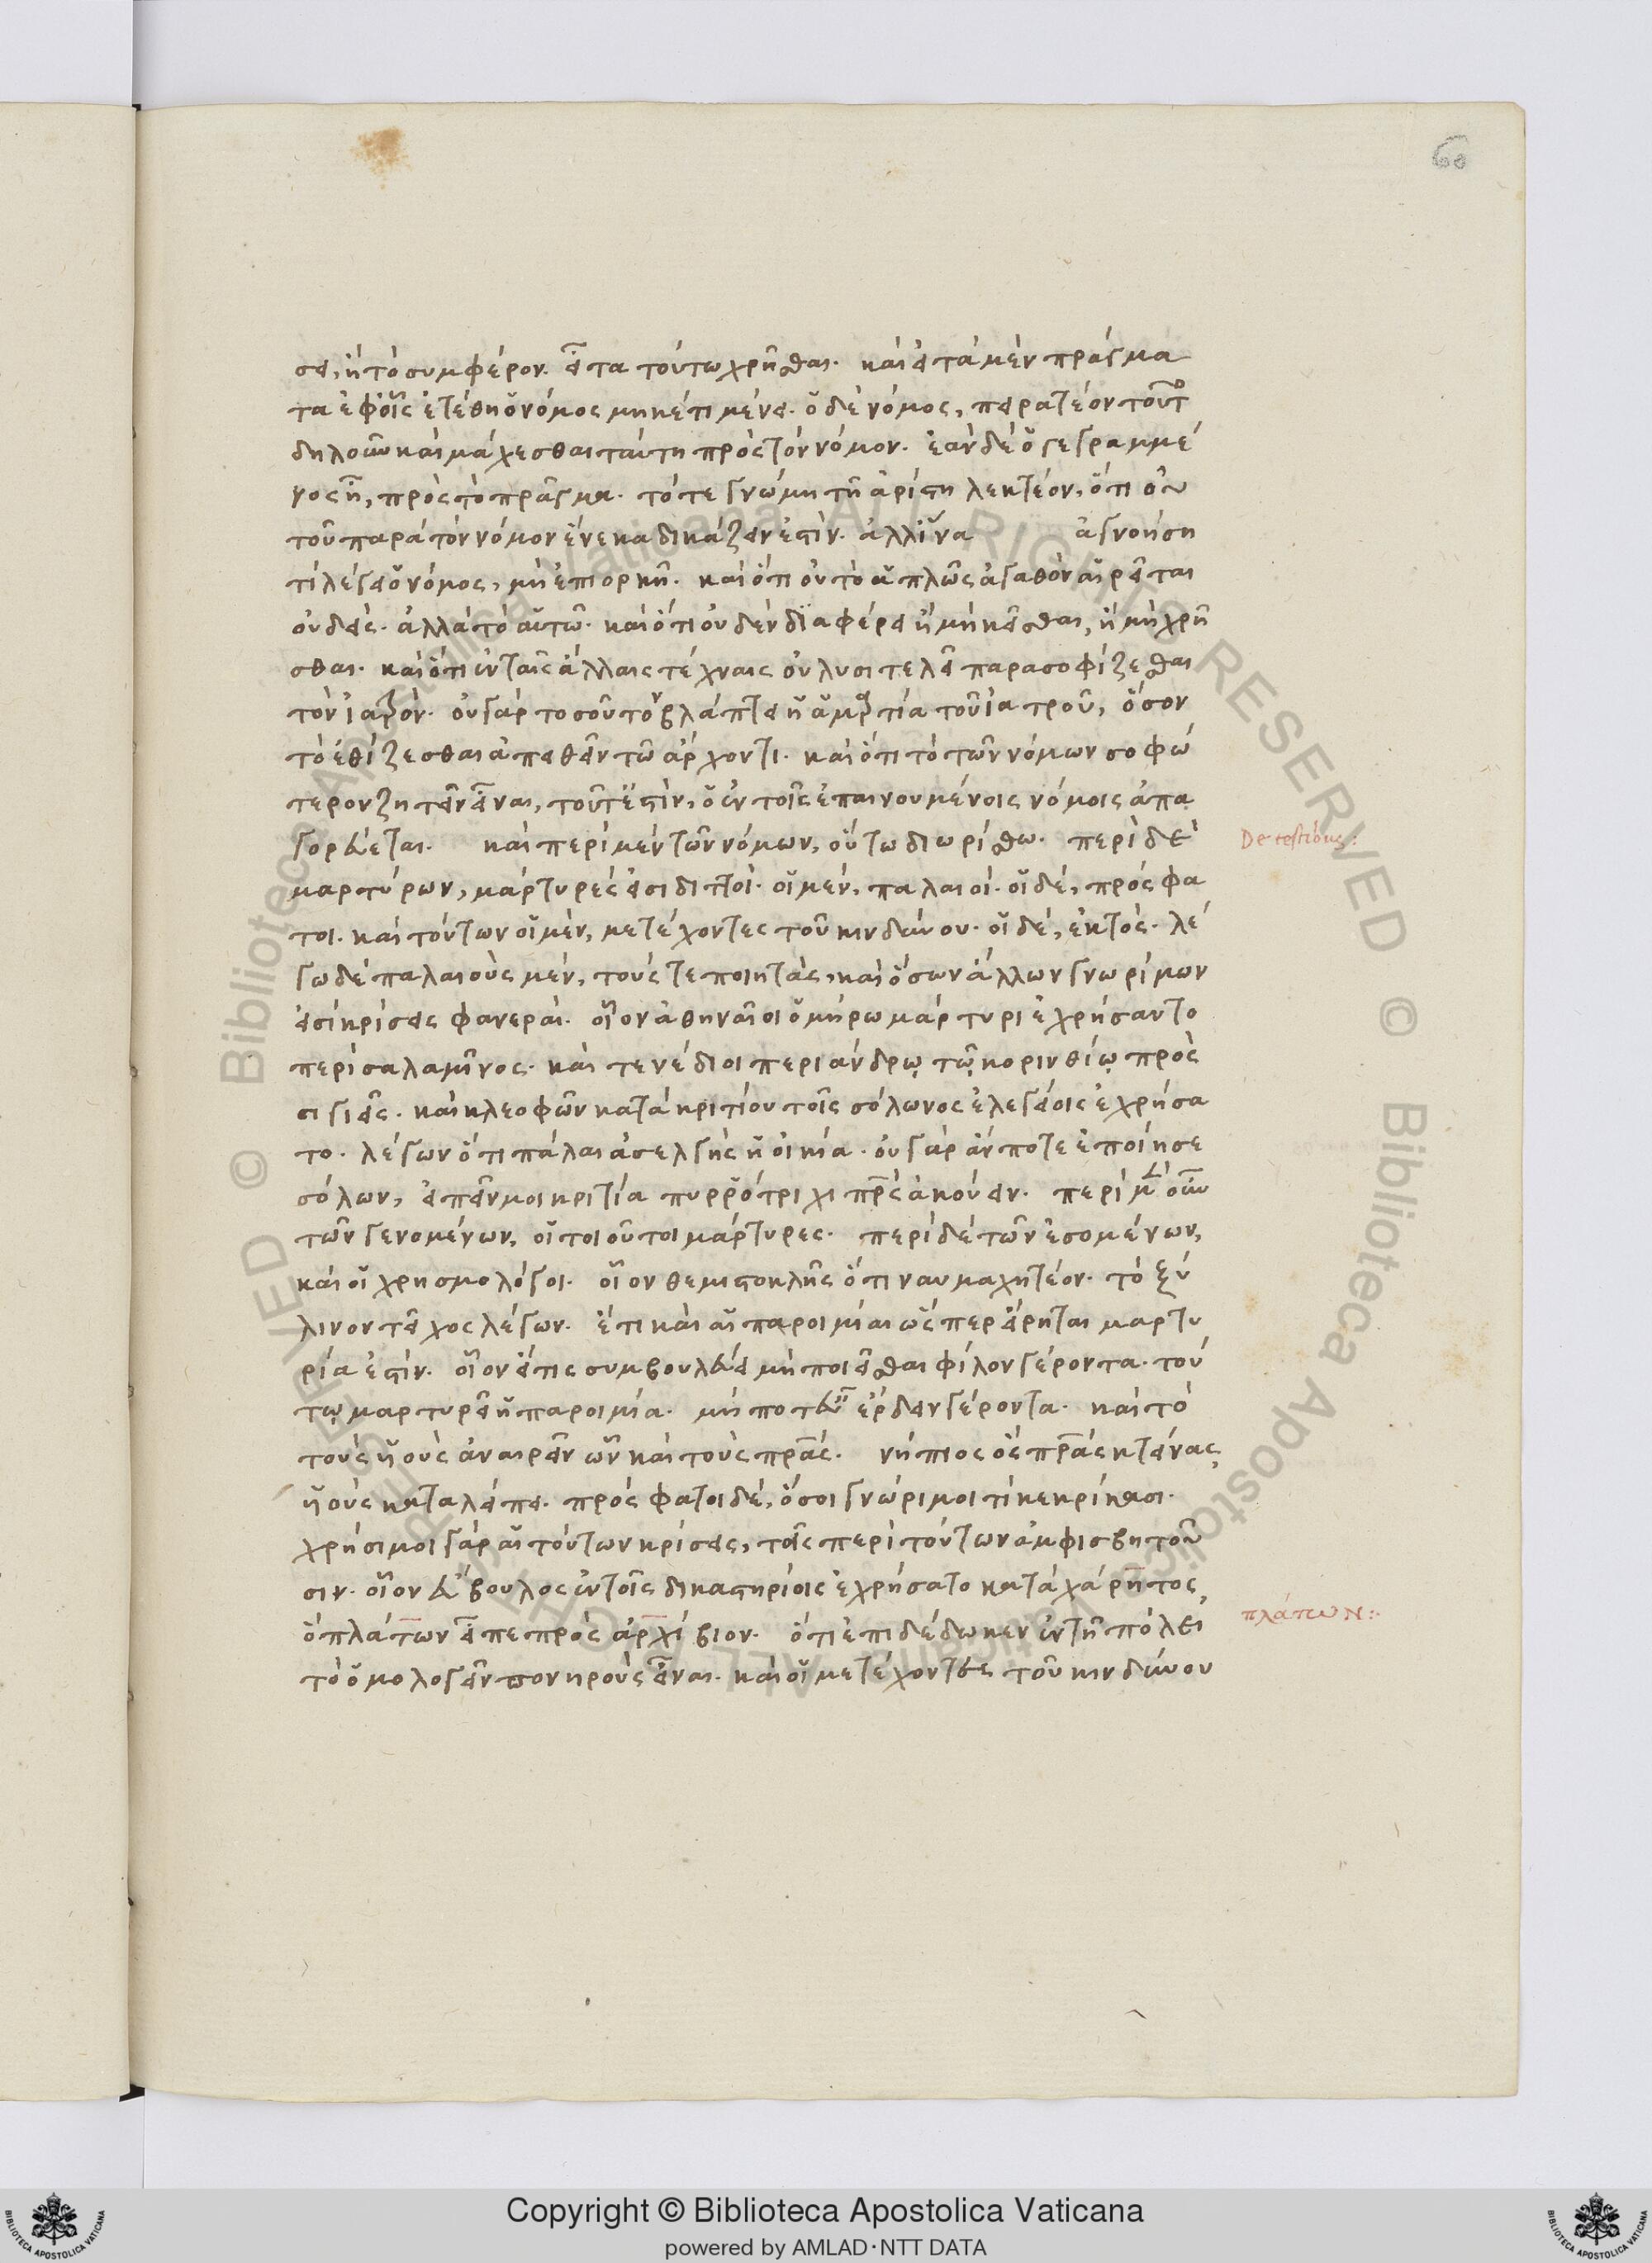 60
σει, ἢ τὸ συμφέρον. εἶτα τούτω χρῆσθαι. καὶ εἰ τὰ μὲν πράγμα
τα ἐφ' οἷς ἐτέθη ὁ νόμος μηκέτι μένει. ὁ δὲ νόμος, πειρατέον τοῦτο
δηλοῦν καὶ μάχεσθαι ταύτη πρὸς τὸν νόμον. ἐὰν δὲ ὁ γεγραμμέ
νος ῇ, πρὸς τὸ πρᾶγμα. τό τε γνώμη τῆ ἀρίστη λεκτέον, ὅτι οὐ
τοῦ παρὰ τὸν νόμον ἕνεκα δικάζειν ἐστίν. ἀλλ' ἵνα ἀγνοήση
τί λέγει ὁ νόμος, μὴ ἐπιορκῆ. καὶ ὅτι οὐ τὸ ἁπλῶς ἀγαθὸν αἱρεῖται
οὐδείς. ἀλλὰ τὸ αὑτῶ. καὶ ὅτι οὐδὲν διαφέρει ἢ μὴ κεῖσθαι, ἢ μὴ χρῆ
σθαι. καὶ ὅτι ἐν ταῖς ἄλλαις τέχναις οὐ λυσιτελεῖ παρασοφίζεσθαι
τὸν ἰατρόν. οὐ γὰρ τοσοῦτον βλάπτει ἡ ἁμαρτία τοῦ ἰατροῦ, ὅσον
τὸ ἐθίζεσθαι ἀπειθεῖν τῶ ἄρχοντι. καὶ ὅτι τὸ τῶν νόμων σοφώ
τερον ζητεῖν εἶναι, τοῦτ' ἔστιν, ὃ ἐν τοῖς ἐπαινουμένοις νόμοις ἀπα
γορεύεται. καὶ περὶ μὲν τῶν νόμων, οὕτω διωρίσθω. περὶ δὲ
De testibus:
μαρτύρων, μάρτυρές εἰσι διττοί. οἱ μὲν, παλαιοί. οἱ δέ, πρόσφα
τοι. καὶ τούτων οἱ μὲν, μετέχοντες τοῦ κινδύνου. οἱ δέ, ἐκτός. λέ
γω δὲ παλαιοὺς μέν, τούς τε ποιητάς, καὶ ὅσων ἄλλων γνωρίμων
εἰσὶ κρίσεις φανεραί. οἷον ἀθηναῖοι ὁμήρω μάρτυρι ἐχρήσαντο
περὶ σαλαμῖνος. καὶ τενέδιοι περιάνδρῳ τῷ κορινθίῳ πρὸς
σιγιεῖς. καὶ κλεοφῶν κατὰ κριτίου τοῖς σόλωνος ἐλεγείοις ἐχρήσα
το. λέγων ὅτι πάλαι ἀσελγὴς ἡ οἰκία. οὐ γὰρ ἄν ποτε ἐποίησε
σόλων, εἰπεῖν μοι κριτία πυρρότριχι πρς ἀκούειν. περὶ μὲν οὖν
τῶν γενομένων, οἵτοι οὗτοι μάρτυρες. περὶ δὲ τῶν ἐσομένων,
καὶ οἱ χρησμολόγοι. οἷον θεμιστοκλῆς ὅτι ναυμαχητέον. τὸ ξύ
λινον τεῖχος λέγων. ἔτι καὶ αἱ παροιμίαι ὥσπερ εἴρηται μαρτυ
ρία ἐστίν. οἷον εἴ τις συμβουλεύει μὴ ποιεῖσθαι φίλον γέροντα. τού
τῳ μαρτυρεῖ ἡ παροιμία. μή ποτ' εὖ ἔρδειν γέροντα. καὶ τὸ
τοὺς υἱοὺς ἀναιρεῖν ὧν καὶ τοὺς πρας. νήπιος ὃς πρας κτείνας
υἱοὺς καταλείπει. πρόσφατοι δέ, ὅσοι γνώριμοι τὶ κεκρίκασι.
χρήσιμοι γὰρ αἱ τούτων κρίσεις, τοῖς περὶ τούτων ἀμφισβητοῦ
σιν. οἷον εὔβουλος ἐν τοῖς δικαστηρίοις ἐχρήσατο κατὰ χάρητος,
ὃ πλάτων εἶπε πρὸς ἀρχίβιον. ὅτι ἐπιδέδωκεν ἐν τῆ πόλει
πλάτων:
τὸ ὁμολογεῖν πονηροὺς εἶναι. καὶ οἱ μετέχοντες τοῦ κινδύνου
Copyright © Biblioteca Apostolica Vaticana
powered by AMLAD·NTT DATA